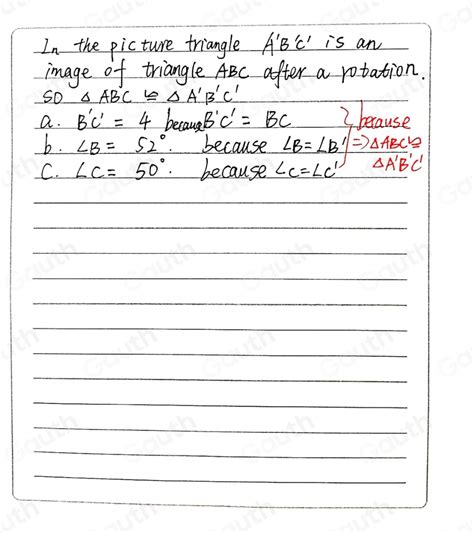 In the picture triangle A'B'C' is an
image of triangle ABC after a rotation.
SO △ ABC ≌ △ A'B'C'
a. B'C' = 4 because B'C' = BC
b. ∠B = 52°. because ∠B=∠B'
C. ∠C= 50°. because ∠C=∠C'
because
=> △ABC≌
△A'B'C'
Gauth